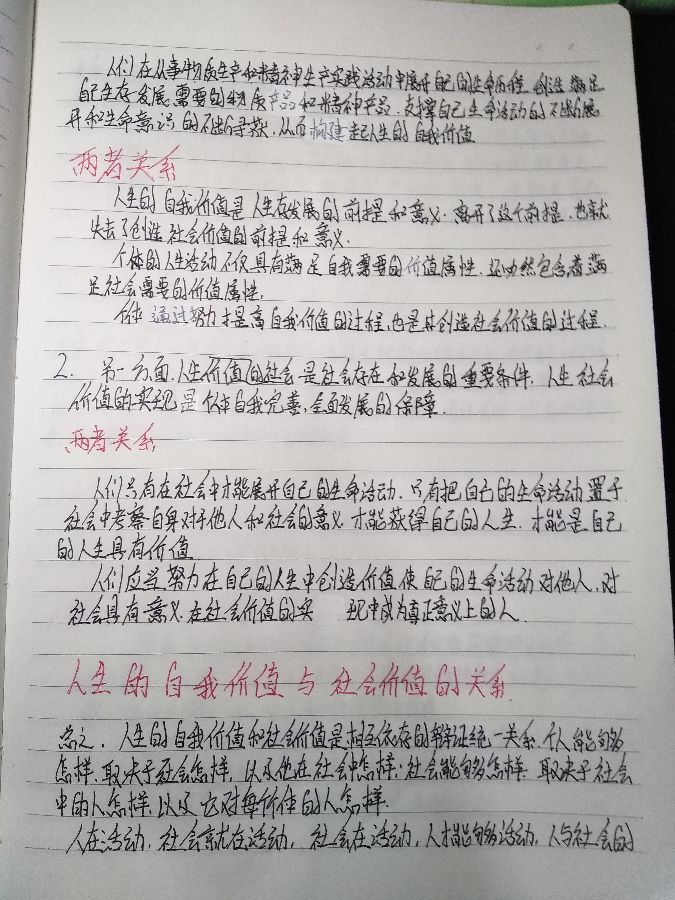 人们在从事物质生产和精神生产实践活动中展开自己的生命历程,创造满足
自己生存发展需要的物质产品和精神产品,支撑自己生命活动的不断展
开和生命意识的不断寻获,从而构建起人生的自我价值
两者关系
人生的自我价值是人生存发展的前提和意义.离开了这个前提,也就
失去了创造社会价值的前提和意义.
个体的人生活动不仅具有满足自我需要的价值属性,还必然包含着满
足社会需要的价值属性,
个体通过努力提高自我价值的过程,也是其创造社会价值的过程.
2. 另一方面,人生价值的社会是社会存在和发展的重要条件,人生社会
价值的实现是个体自我完善,全面发展的保障.
两者关系
人们只有在社会中才能展开自己的生命活动.只有把自己的生命活动置于
社会中考察自身对于他人和社会的意义,才能获得自己的人生.才能是自己
的人生具有价值
人们应当努力在自己的人生中创造价值,使自己的生命活动对他人,对
社会具有意义.在社会价值的实 现中成为真正意义上的人.
人生的自我价值与社会价值的关系
总之.人生的自我价值和社会价值是相互依存的辩证统一关系.个人能够
怎样,取决于社会怎样,以及他在社会中怎样;社会能够怎样.取决于社会
中的人怎样,以及它对每个个体的人怎样.
人在活动,社会就在活动,社会在活动,人才能够活动,人与社会的